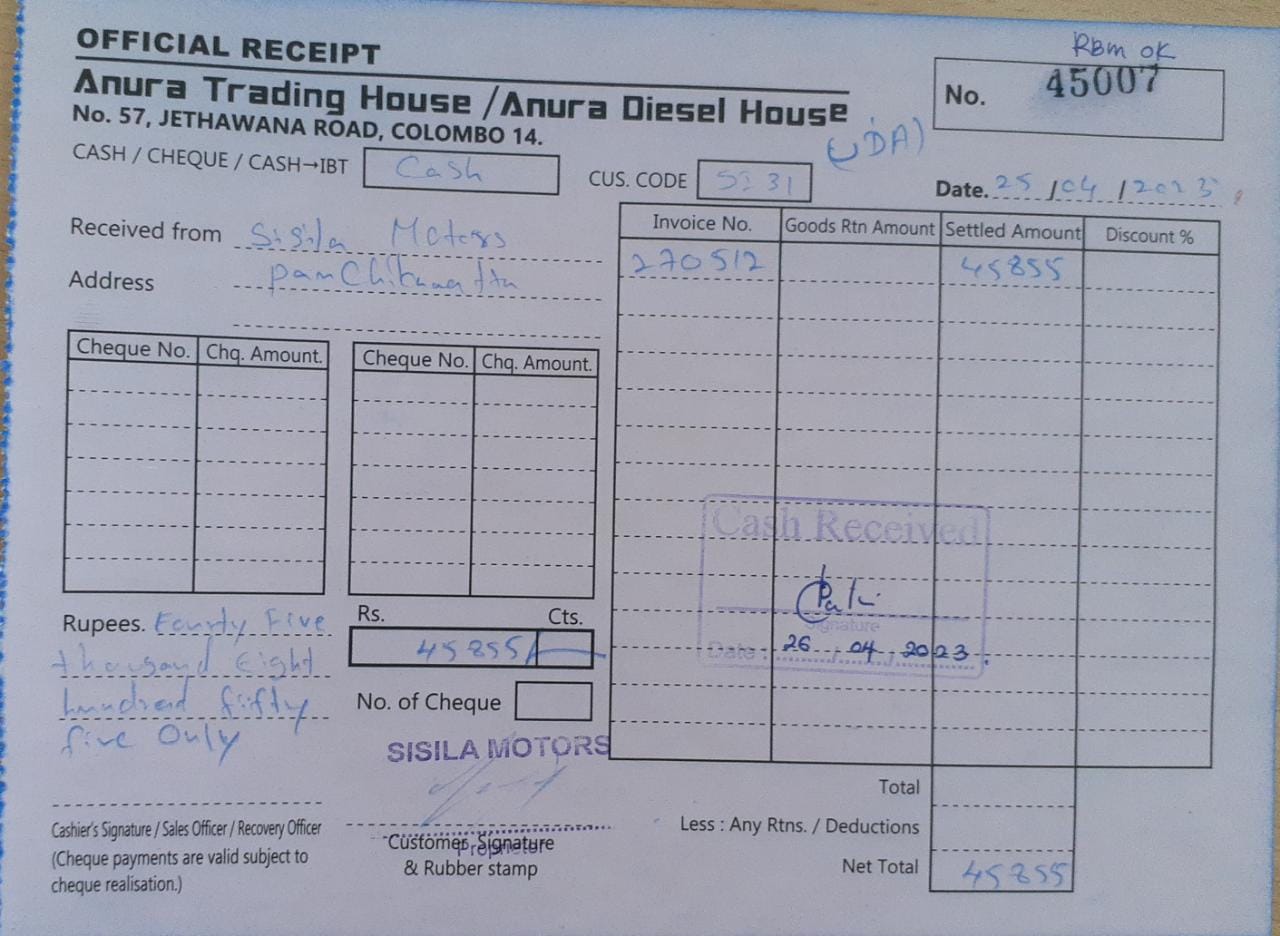 OFFICIAL RECEIPT
RBm OK
Anura Trading House / Anura Diesel House
No. 45007
No. 57, JETHAWANA ROAD, COLOMBO 14.
CASH / CHEQUE / CASH→IBT Cash
CUS. CODE SI 31
Date. 25 / 04 / 2023
Received from Sisila Motors
Address
Invoice No. Goods Rtn Amount Settled Amount Discount %
270512 45855
Cheque No. Chq. Amount. Cheque No. Chq. Amount.
Cash Received
Signature
Date : 26 . 04 . 2023 .
Rupees. Fourty Five
thousand Eight
hundred fifty
five Only
Rs. Cts.
45855/
No. of Cheque
SISILA MOTORS
Proprietor
Customer Signature
& Rubber stamp
Cashier's Signature / Sales Officer / Recovery Officer
(Cheque payments are valid subject to
cheque realisation.)
Total
Less : Any Rtns. / Deductions
Net Total 45855